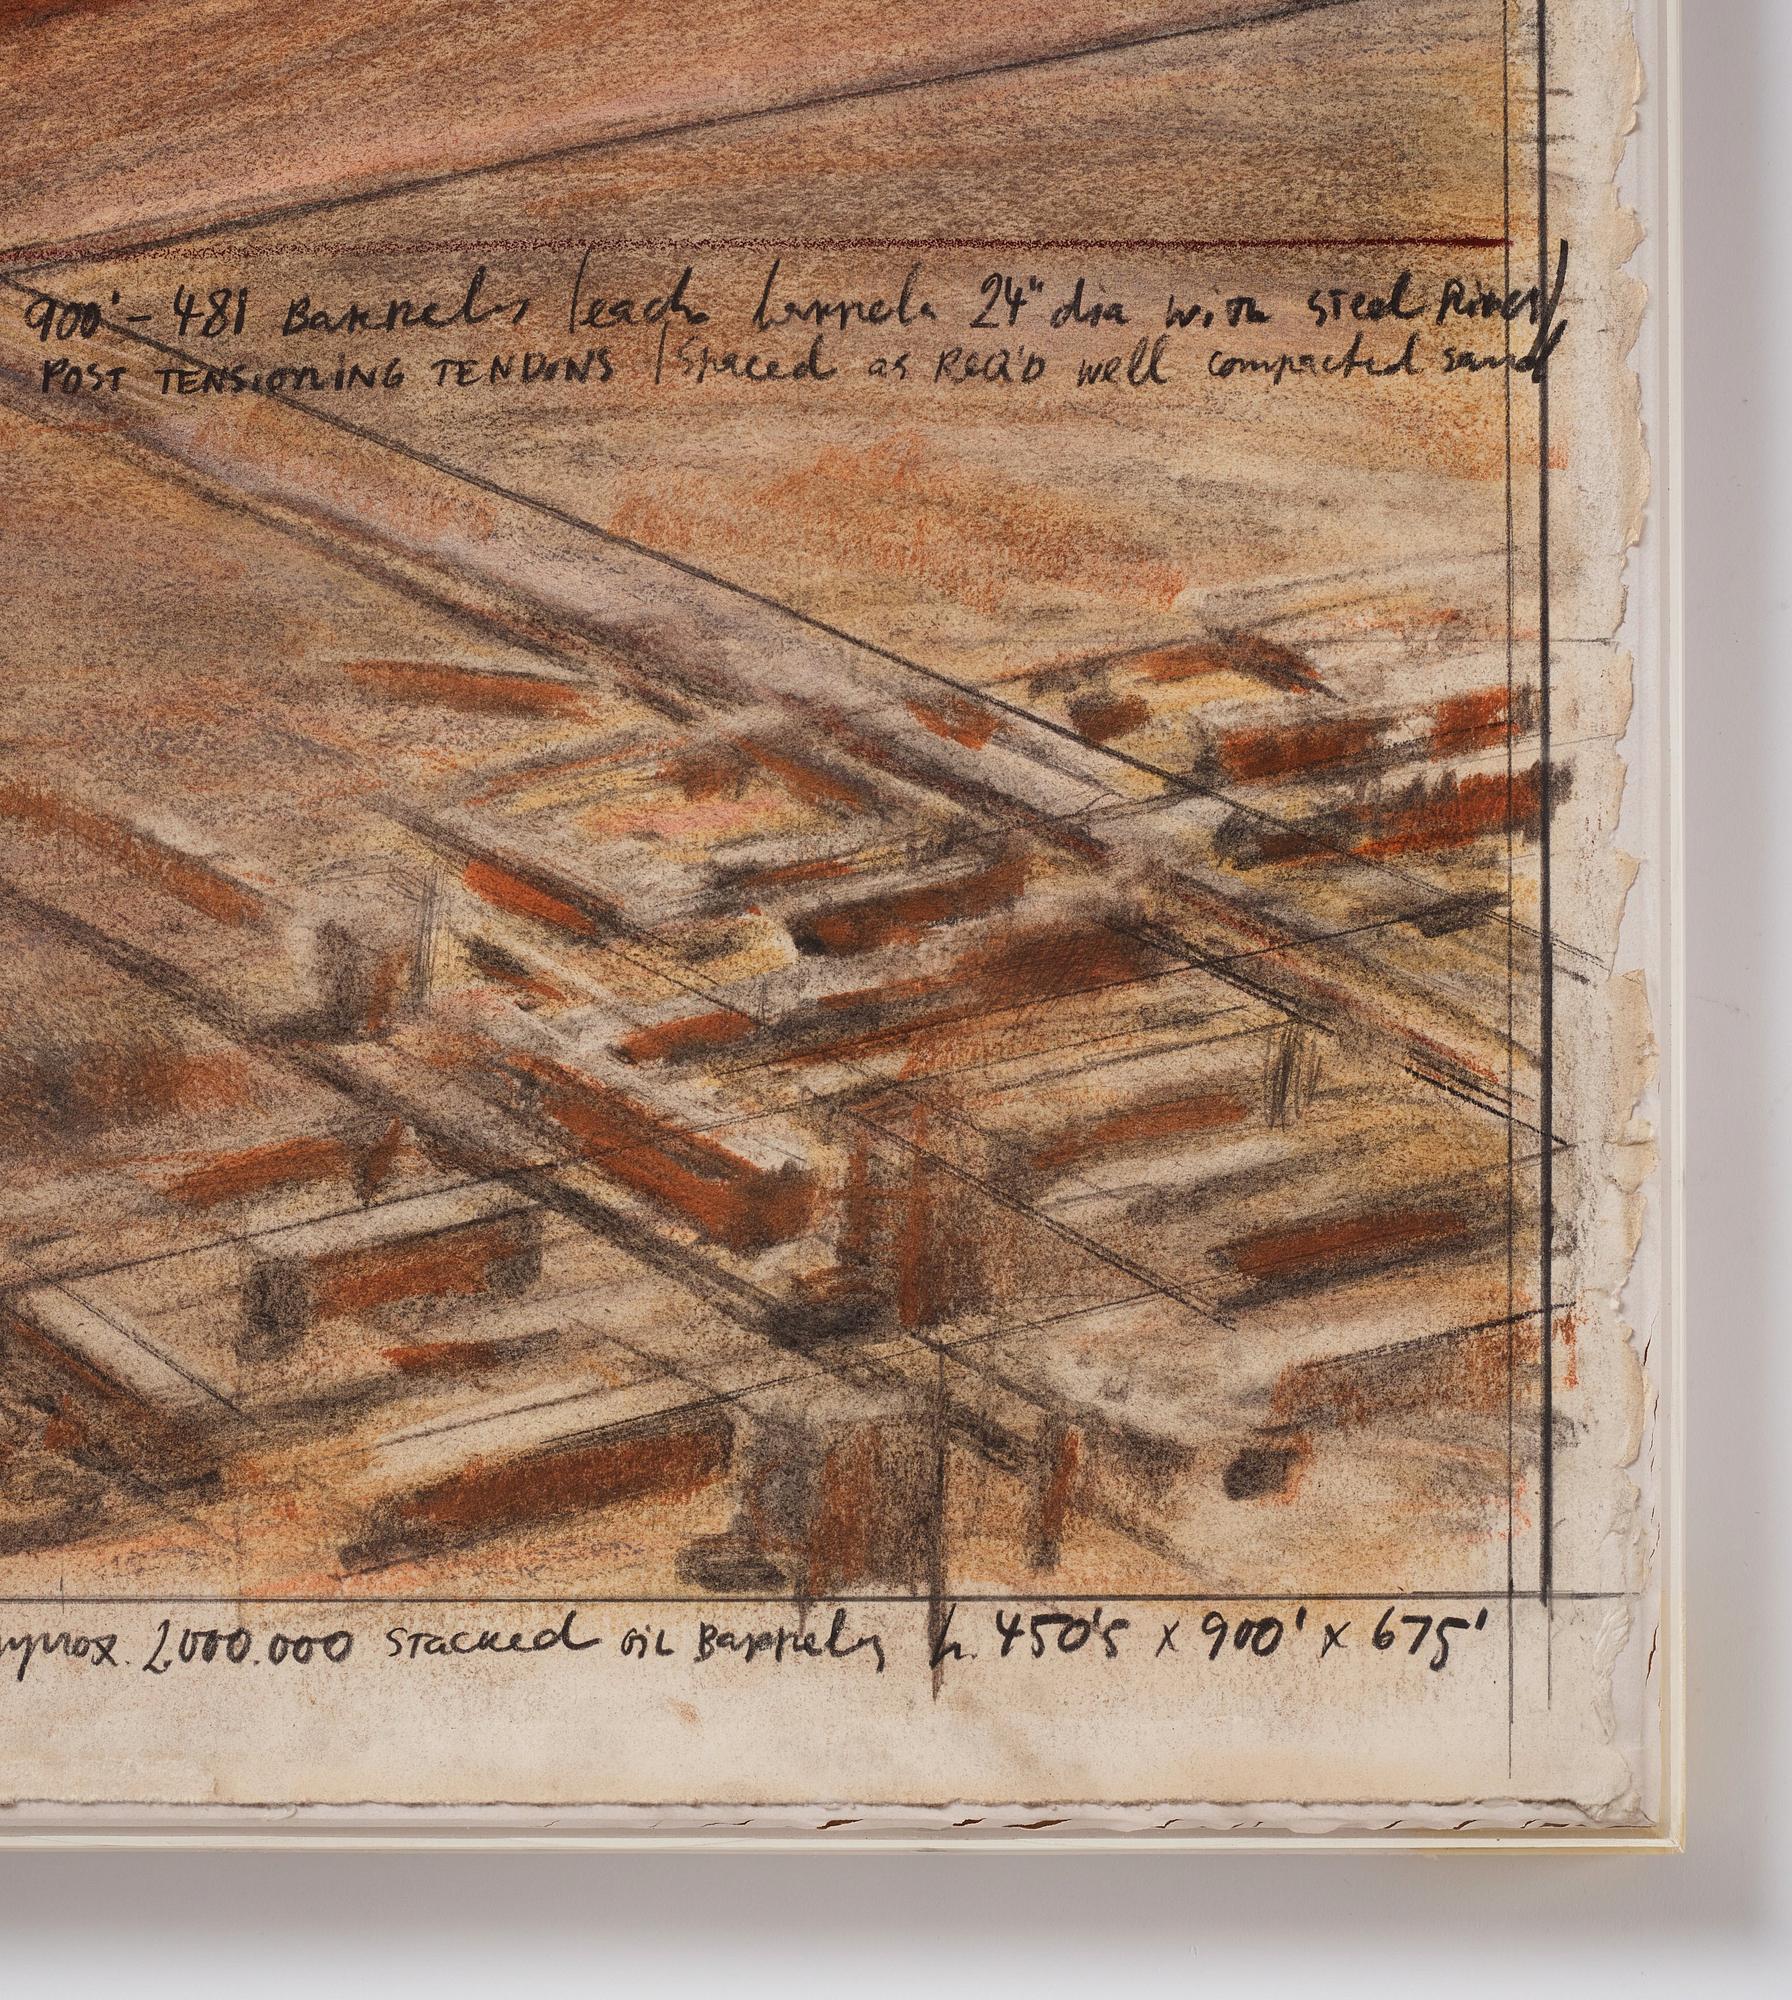 900' - 481 Barrels / each barrel 24" dia with STeel River/
POST TENSIONING TENDONS / Spaced as REQ'D well compacted sand
2.000.000 STacked OIL Barrels h. 450'5 x 900' x 675'